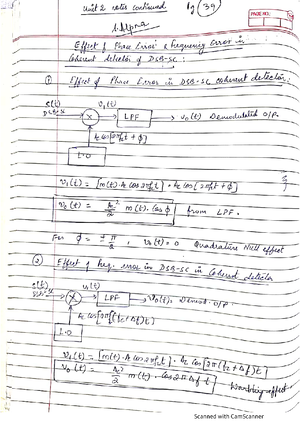 Unit 2 notes continued pg 39
PAGE NO.
Effect of Phase Error & frequency Error in
Coherent detector of DSB-SC :
① Effect of Phase Error in DSB-SC Coherent detector.
s(t) v₁(t)
DSB-SC X LPF → v₀(t) Demodulated O/P.
Ac cos[2πfct + ϕ]
L.O
v₁(t) = [m(t). Ac cos 2πfct] * Ac cos[2πfct + ϕ]
v₀(t) = Ac²/2 m(t). cos ϕ from LPF.
For ϕ = ± π/2 , v₀(t) = 0 Quadrature Null effect
② Effect of freq. error in DSB-SC in Coherent detector
s(t) v₁(t)
DSB-SC X LPF → v₀(t). Demod. O/P
Ac cos[2π(fc + Δf)t]
L.O
v₁(t) = [m(t). Ac cos 2πfct] . Ac cos[2π(fc + Δf)t]
v₀(t) = Ac²/2 m(t). cos 2πΔf t Warbling effect.
Scanned with CamScanner